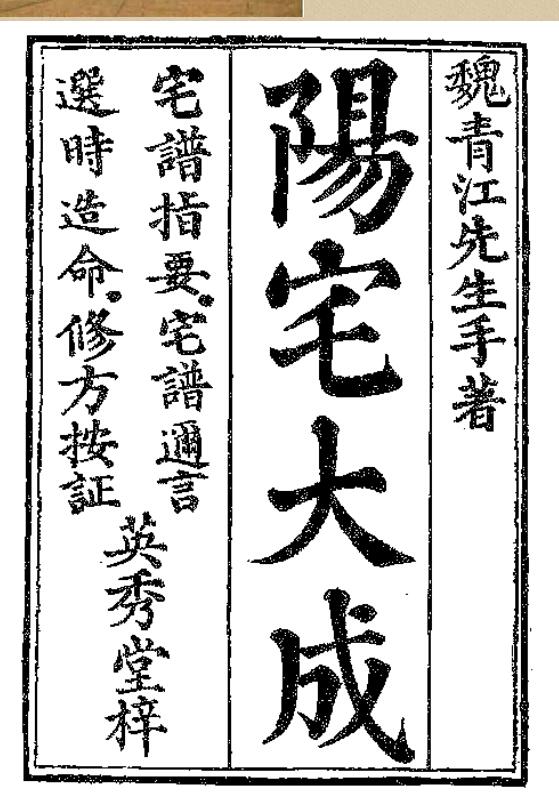 魏青江先生手著
陽宅大成
宅譜指要。宅譜邇言
選時造命。修方按証
英秀堂梓